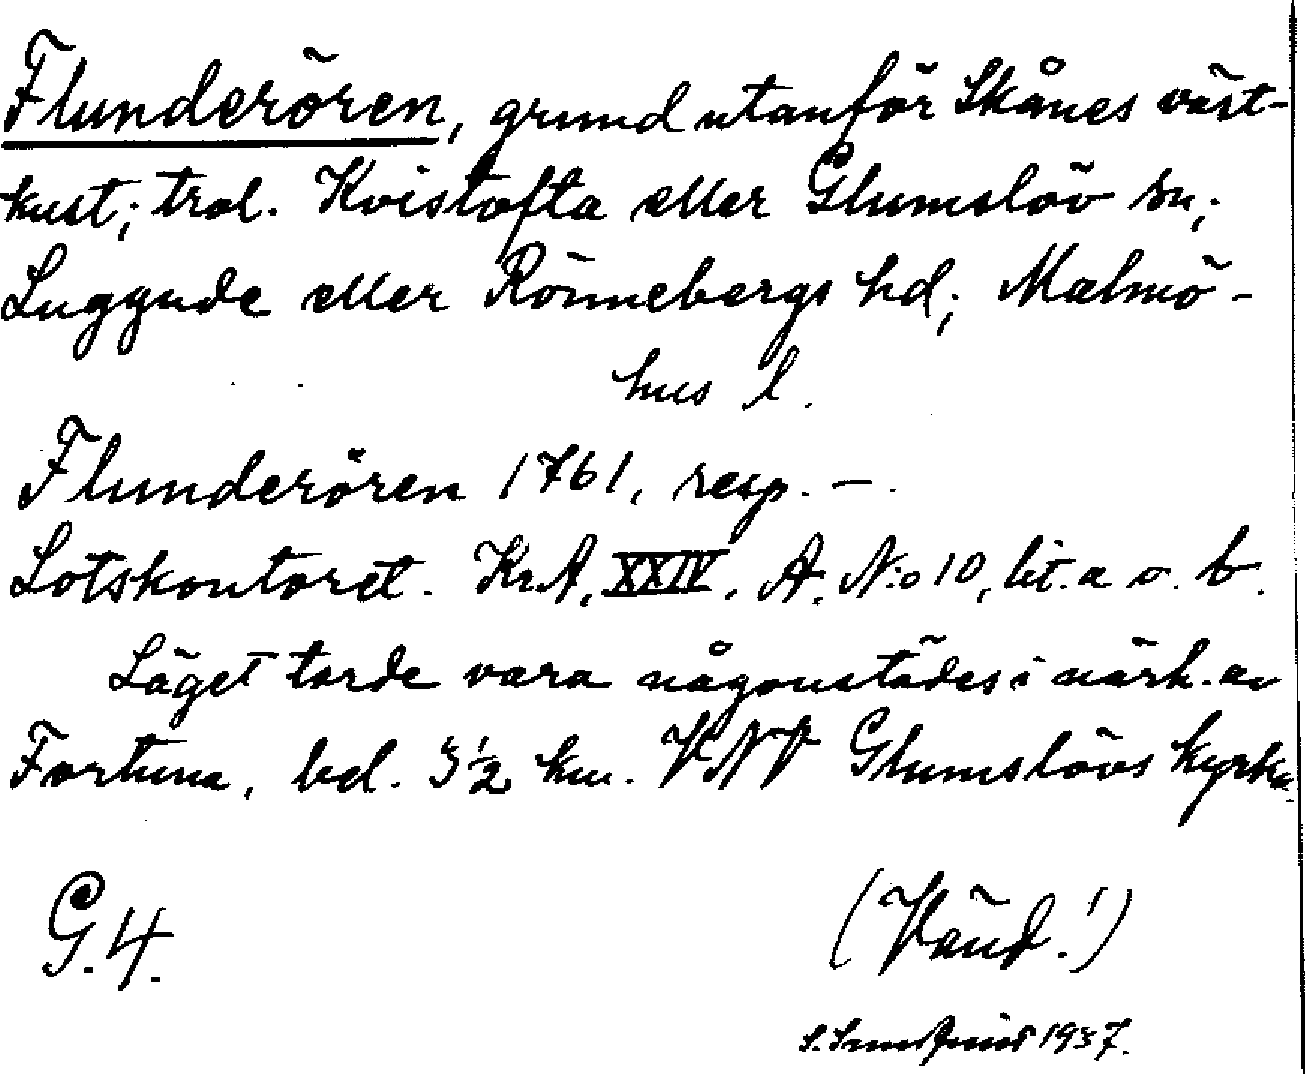 Flunderören, grund utanför Skånes väst-
kust; trol. Kvistofta eller Glumslöv sn;
Luggude eller Rönnebergs hd; Malmö-
hus l.
Flunderören 1761, resp. –.
Lotskontoret. KrA, XXIV, A. N:o 10, lit. a o. b.
Läget torde vara någonstädes i närh. av
Fortuna, bel. 3½ km. VNV Glumslövs kyrka
G.4.
(Vänd!)
S. 1937.